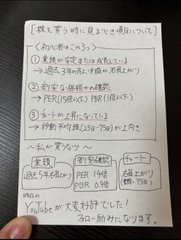 【株を買う時に見るべき項目について】
〈初心者はこの3つ〉
① 業績が安定または成長している
→ 過去3年の売上・利益が右肩上がり
② 割安な価格かの確認
→ PER(15倍以下) PBR(1倍以下)
③ チャートが上昇になっている
→ 移動平均線(25日・75日)が上向き
〜私が買うなら〜
業績
過去5年右肩上がり
割安確認
PER 14倍
PBR 0.9倍
チャート
右肩上がり
75日
YouTubeが大変好評でした!
フォロー励みになります。